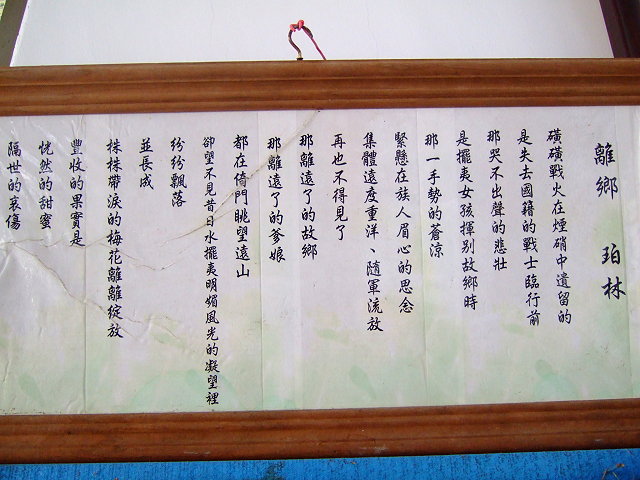 離鄉 珀林
磺磺戰火在煙硝中遺留的
是失去國籍的戰士臨行前
那哭不出聲的悲壯
是擺夷女孩揮別故鄉時
那一手勢的蒼涼
緊懸在族人眉心的思念
集體遠度重洋、隨軍流放
再也不得見了
那離遠了的故鄉
那離遠了的爹娘
都在倚門眺望遠山
卻望不見昔日水擺夷明媚風光的凝望裡
紛紛飄落
並長成
株株帶淚的梅花離離綻放
豐收的果實是
恍然的甜蜜
隔世的哀傷